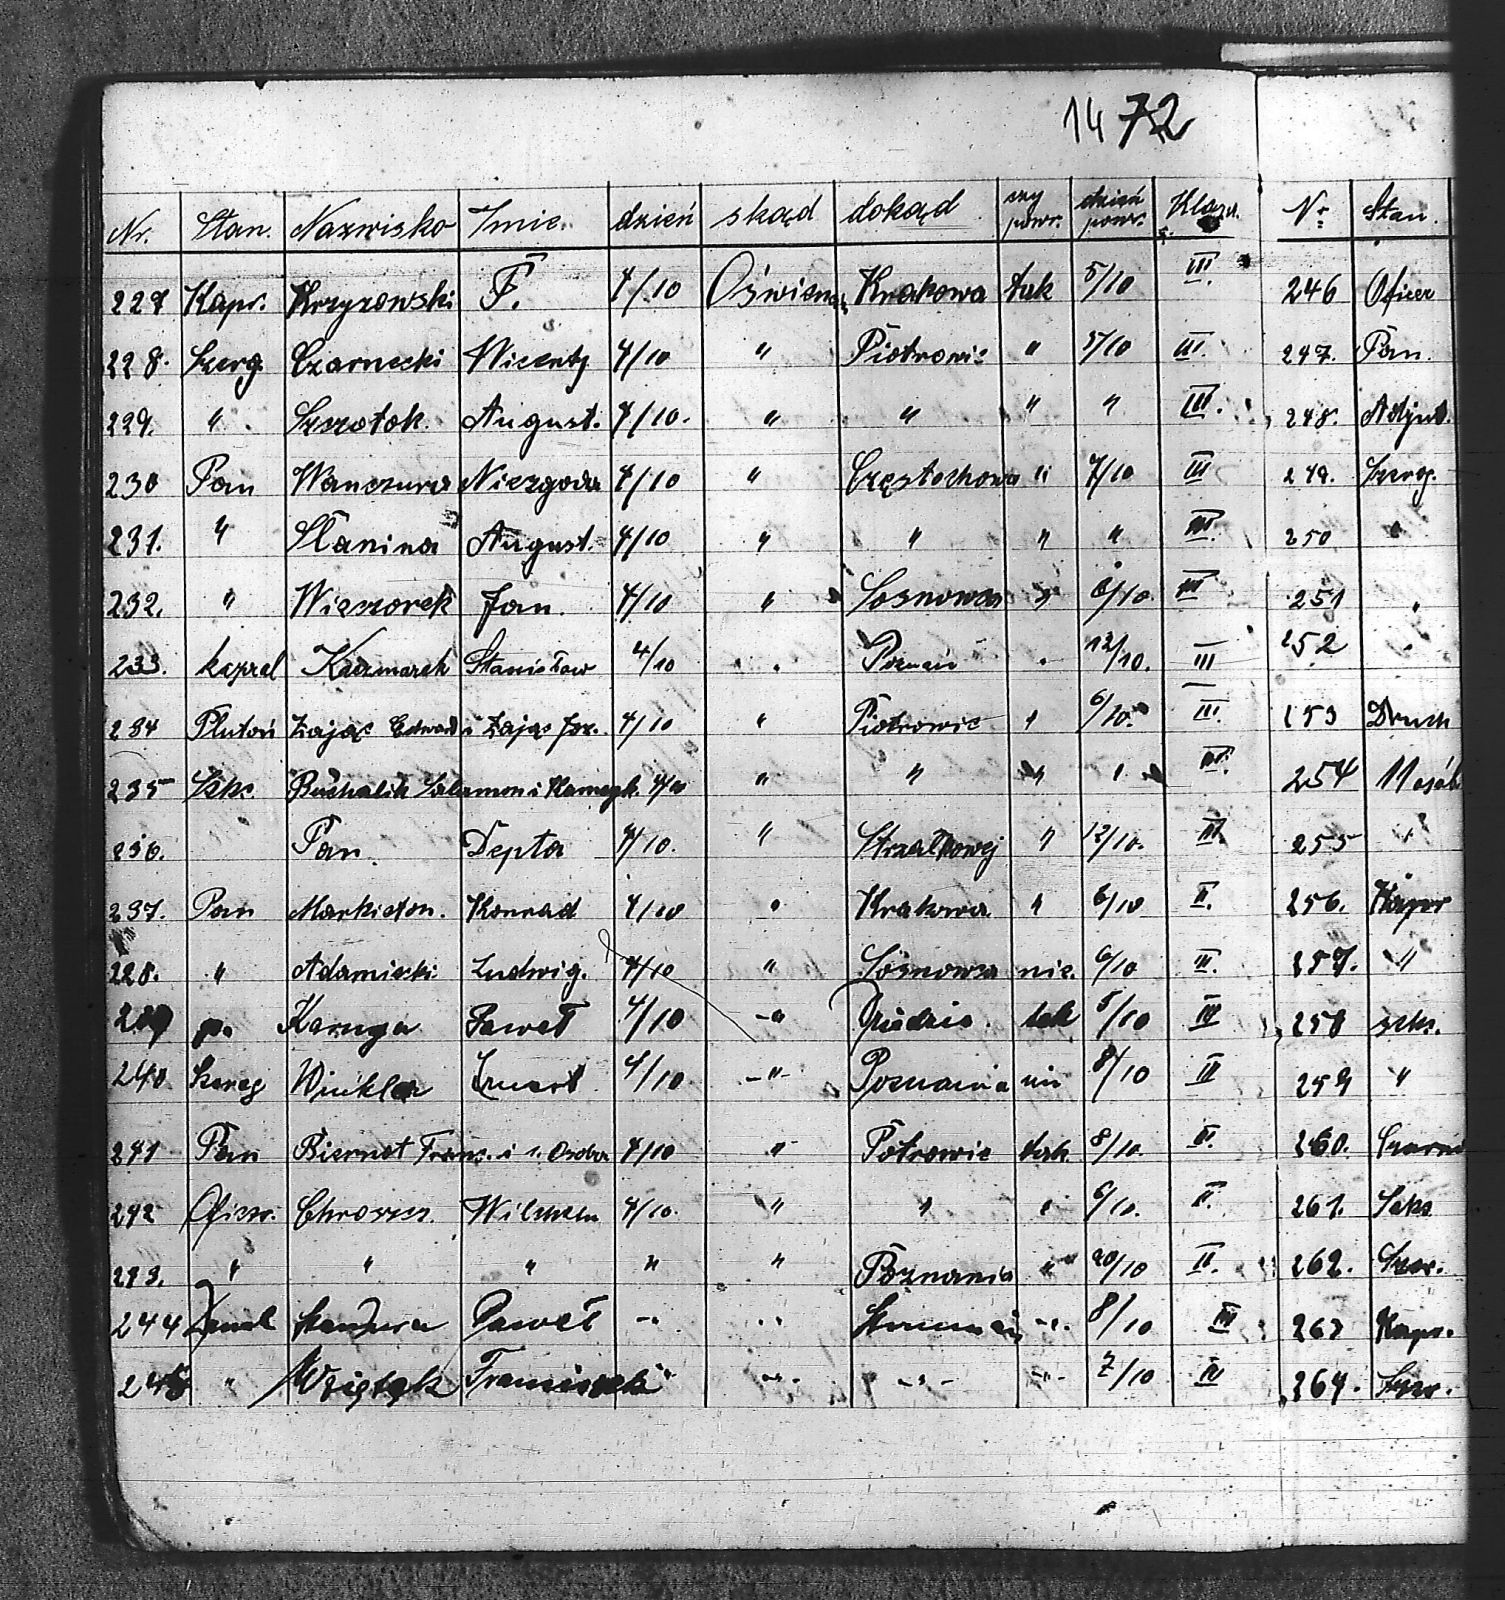 14 72
Nr. Stan. Nazwisko Imie. dzień skąd dokąd czy powr. dzień powr. Klasa. Nr Stan.
227 Kapr. Krzyzowski F. 4/10 Krakowa tak 5/10 III. 246 Oficer
228. Szereg. Czarnecki Wicenty 4/10 " Piotrowic " 5/10 III. 247. Pan.
229. " Szszotok. August. 4/10. " " " " III. 248. Adjut.
230 Pan Wanczura Niezgoda 4/10 " Częstochowa " 7/10 III 249. Szereg.
231. " Slanina August. 4/10 " " " " III. 250 "
232. " Wieczorek Jan. 4/10 " Sosnowca " 6/10. III 251 "
233. kapral Kaczmarek Stanisław 4/10 " Poznań " 12/10. III 252 "
234 Plutoń Zając Edward i Zając Joz. 4/10 " Piotrowic " 6/10. III. 253 Druch
235 Szks. Buchalik Salamon i 4/10 " " " " III. 254
236. Pan Depta 4/10. " " 12/10. III 255 "
237. Pan Markieton. Konrad 4/10 " Krakowa " 6/10 II. 256. Kapr
228. " Adamiecki Ludwig. 4/10 " Sosnowca nie. 6/10 III. 257. "
239 p. Karuga Paweł 4/10 -"- tak 5/10 III 258 szks.
240 Szereg Winkler 4/10 -"- Poznania nie 8/10 III 259 "
241 Pan Biernot Franc. i 1. Osoba 4/10 " Potrowic tak. 8/10 II. 260.
242 Oficer. Chroszcz. 4/10. " " " 6/10. II. 261. Szks
243. " " " " " Poznania " 20/10 II. 262. Szer.
244 Paweł -"- -"- -"- 8/10 III 263 Kapr.
245 " Wziętek Franciszek " -"- -"- -"- 7/10 III 264. Szer.